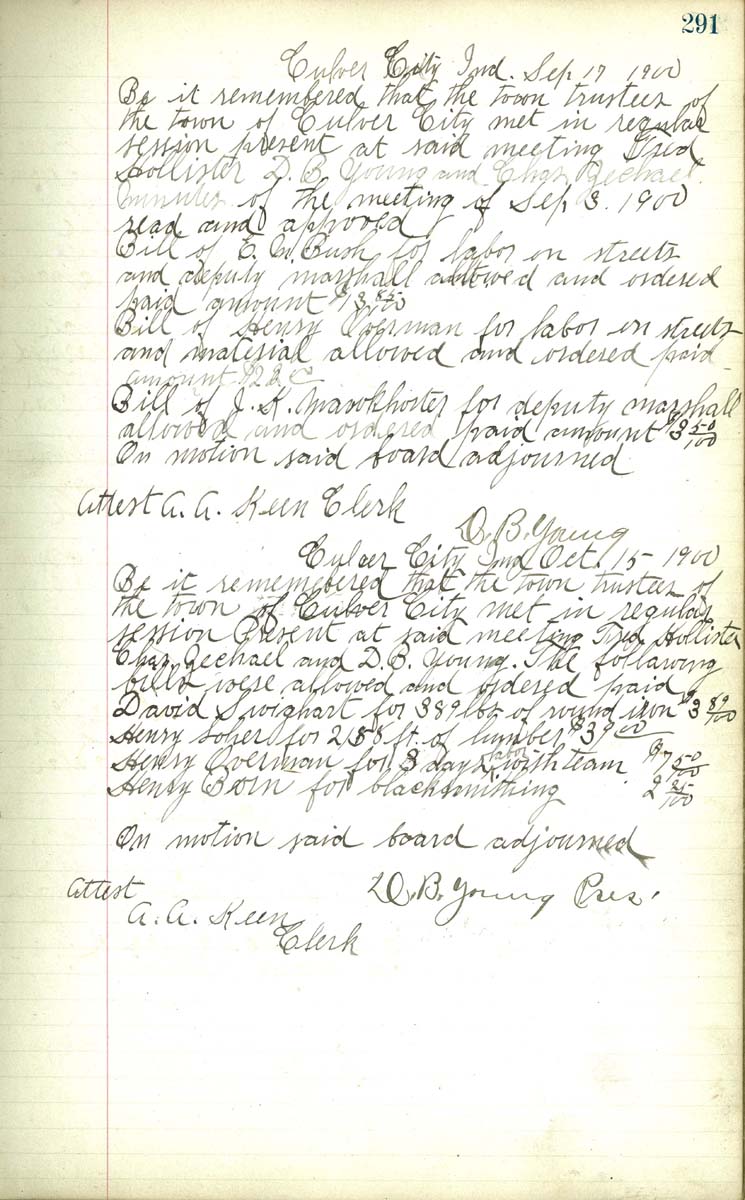 291
Culver City Ind. Sep 17 1900
Be it remembered that the town trustees of
the town of Culver City met in regular
session present at said meeting Fred
Hollister D. B. Young and Chas Zechael.
Minutes of the meeting of Sep 3. 1900
read and approved
Bill of E. W. Bush for labor on streets
and deputy marshall allowed and ordered
paid amount $13 85/100
Bill of Henry Overman for labor on streets
and material allowed and ordered paid
amount
Bill of J. K. for deputy marshall
allowed and ordered paid amount $3 50/100
On motion said board adjourned
Attest A. A. Keen Clerk
D. B. Young
Culver City Ind Oct. 15 1900
Be it rememebered that the town trustees of
the town of Culver City met in regular
session Present at said meeting Fred Hollister
Chas. Zechael and D. B. Young. The following
bills were allowed and ordered paid
David Swighart for 389 lbs of round iron $3 89/100
Henry for 2158 ft. of lumber $39 00
Henry Overman for 3 days labor with team $7 50/100
Henry Born for blacksmithing 2 25/100
On motion said board adjourned
Attest
D. B. Young Pres.
A. A. Keen
Clerk